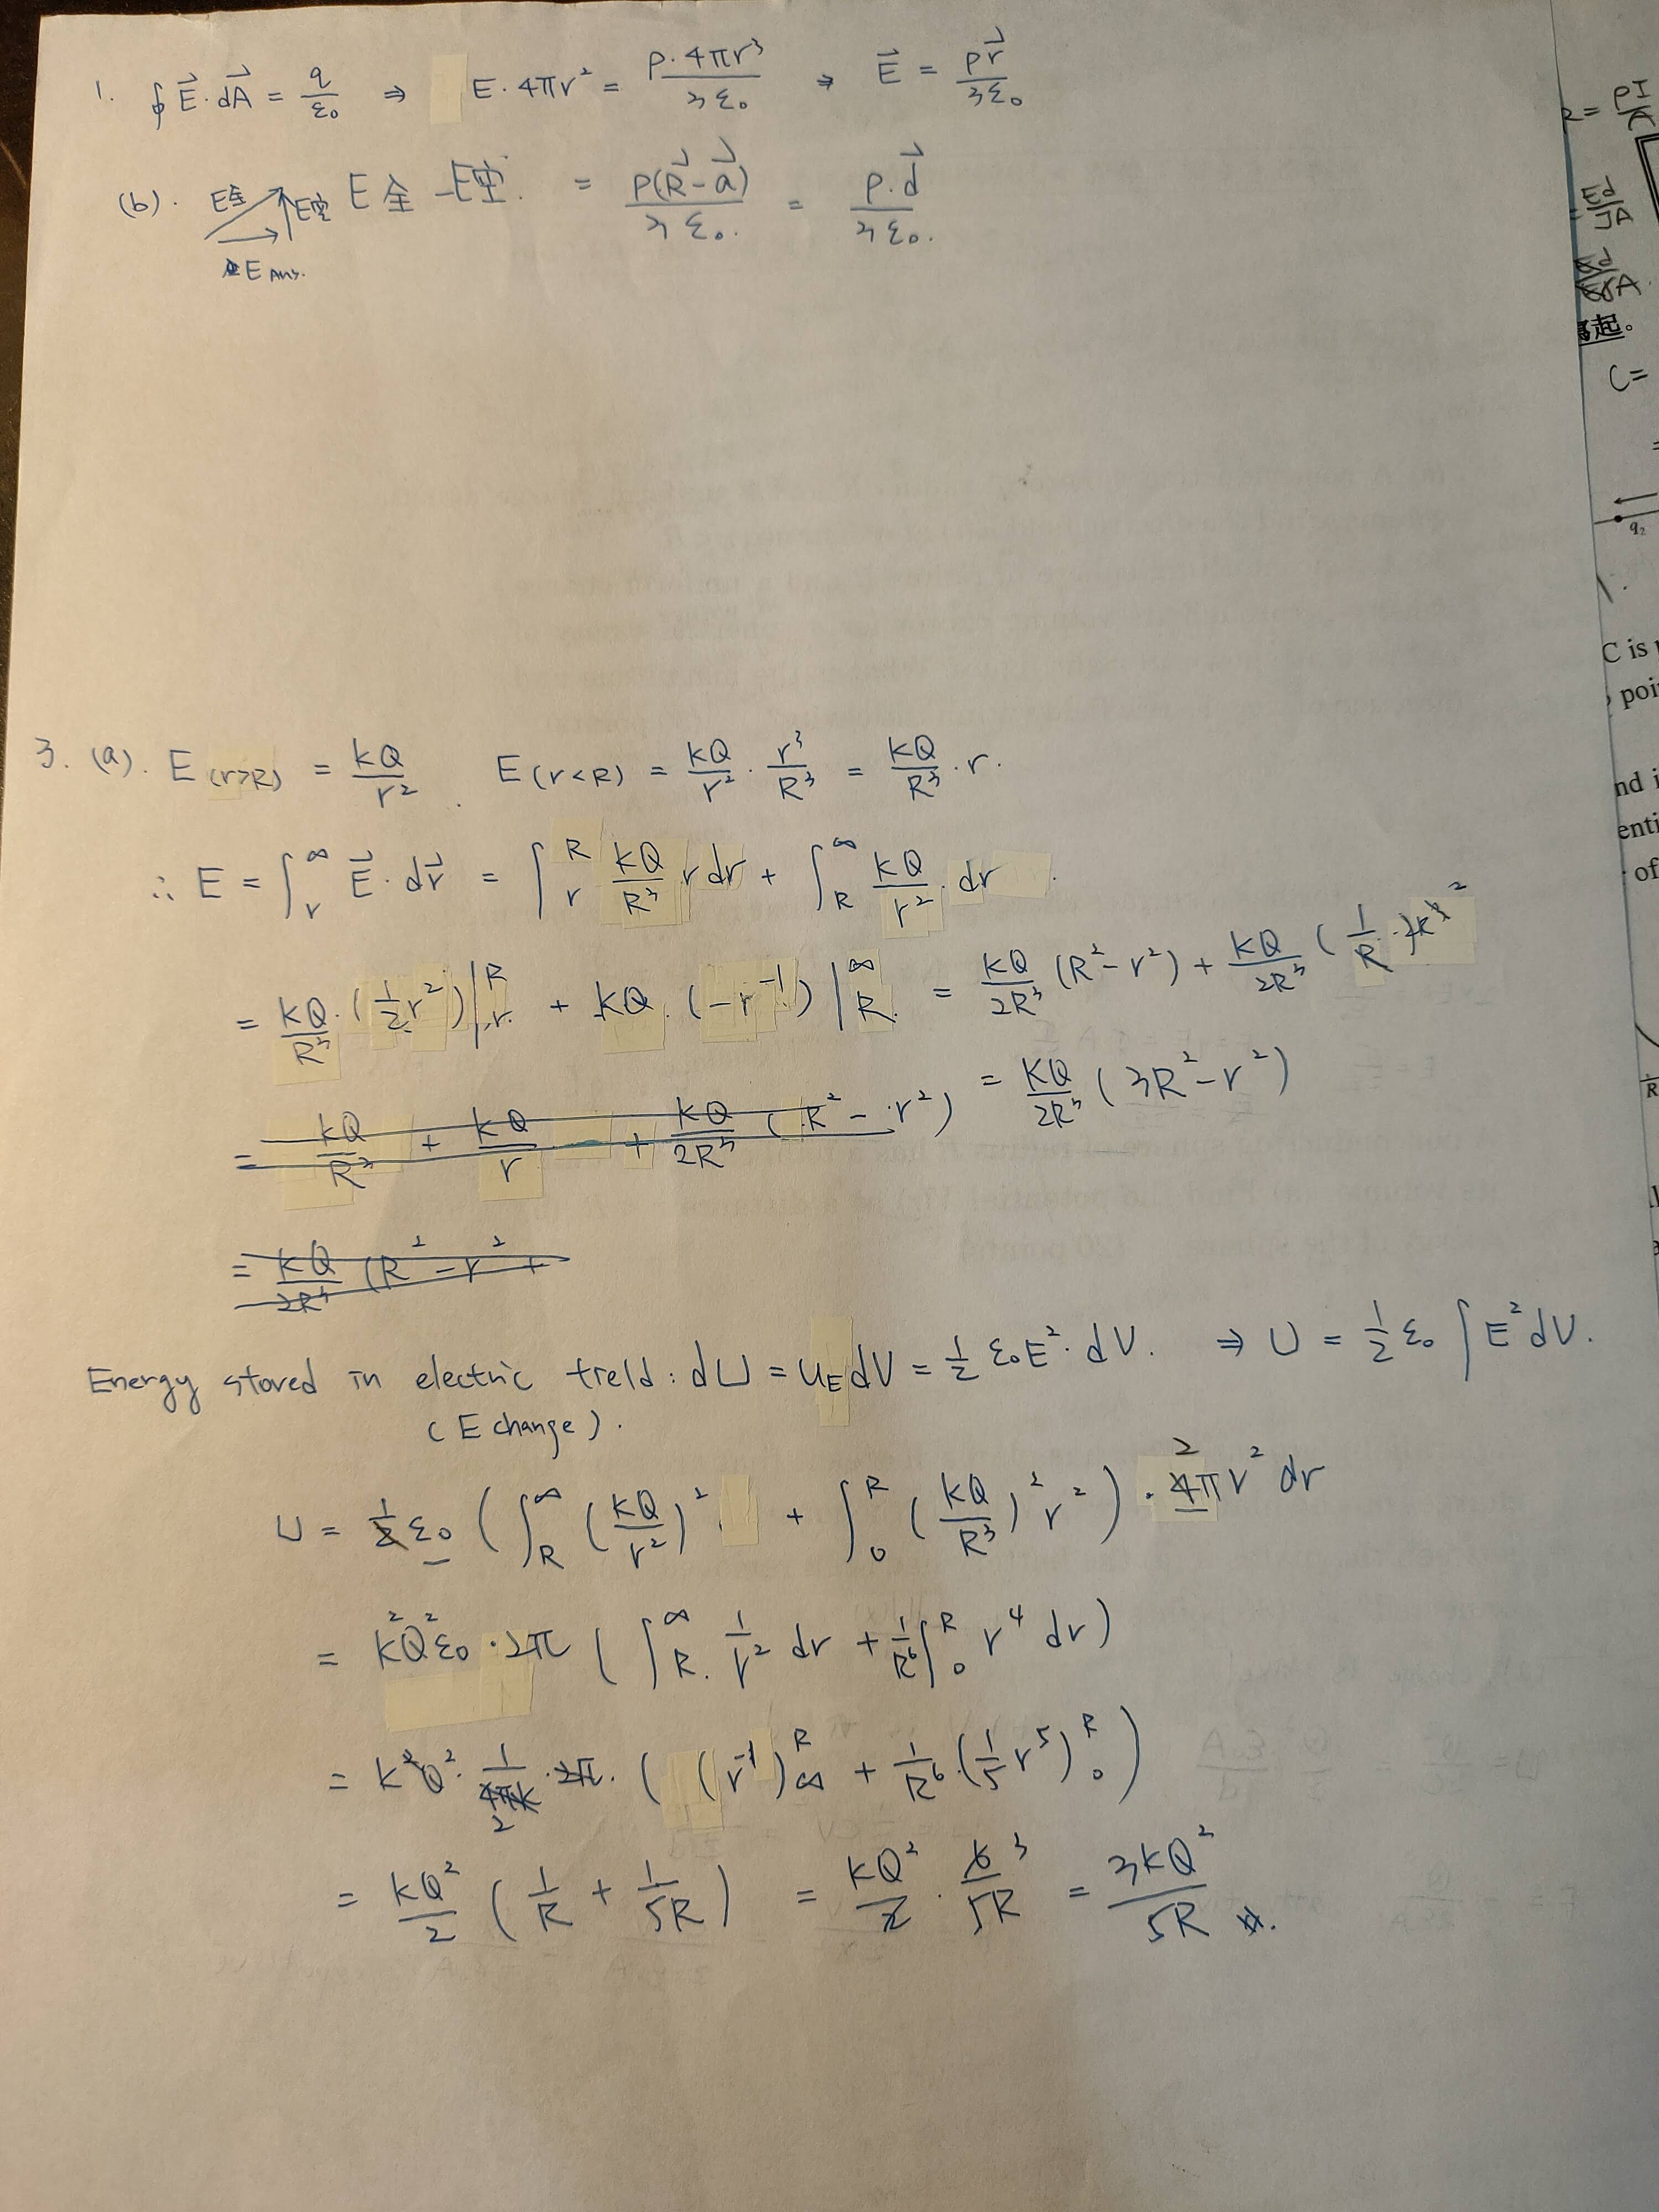 1. ∮ E⃗·dA⃗ = q/ε₀ ⇒ E·4πr² = ρ·4πr³/3ε₀ → E⃗ = ρr⃗/3ε₀
(b). E全 E空 E全 - E空 = ρ(R⃗-a⃗)/3ε₀. = ρ·d⃗/3ε₀.
E Ans.
3. (a). E(r>R) = kQ/r². E(r<R) = kQ/r² · r³/R³ = kQ/R³ · r.
∴ E = ∫_r^∞ E⃗·dr⃗ = ∫_r^R kQ/R³ r dr + ∫_R^∞ kQ/r² · dr.
= kQ/R³ · (½r²)|_r^R + kQ.(-r⁻¹)|_R^∞ = kQ/2R³ (R²-r²) + kQ/2R³
= kQ/2R³ (3R²-r²)
= kQ/R³ + kQ/r + kQ/2R³ (R²-r²)
= kQ/2R³ (R²-r²+
Energy stored in electric field: dU = u_E dV = ½ε₀E²·dV. ⇒ U = ½ε₀ ∫E²dV.
(E change).
U = ½ε₀ (∫_R^∞ (kQ/r²)² + ∫_0^R (kQ/R³)² r²) · 4πr² dr
2
= k²Q²ε₀ · 2π (∫_R^∞ 1/r² dr + 1/R⁶ ∫_0^R r⁴ dr)
= k²Q² · 1/4πk · 2π. ((r⁻¹)_∞^R + 1/R⁶ · (1/5 r⁵)_0^R)
2
= kQ²/2 (1/R + 1/5R) = kQ²/2 · 6/5R = 3kQ²/5R
3
ρI
Ed/JA
A.
起。
C=
=
q₂
C is
poi
nd i
enti
of
R